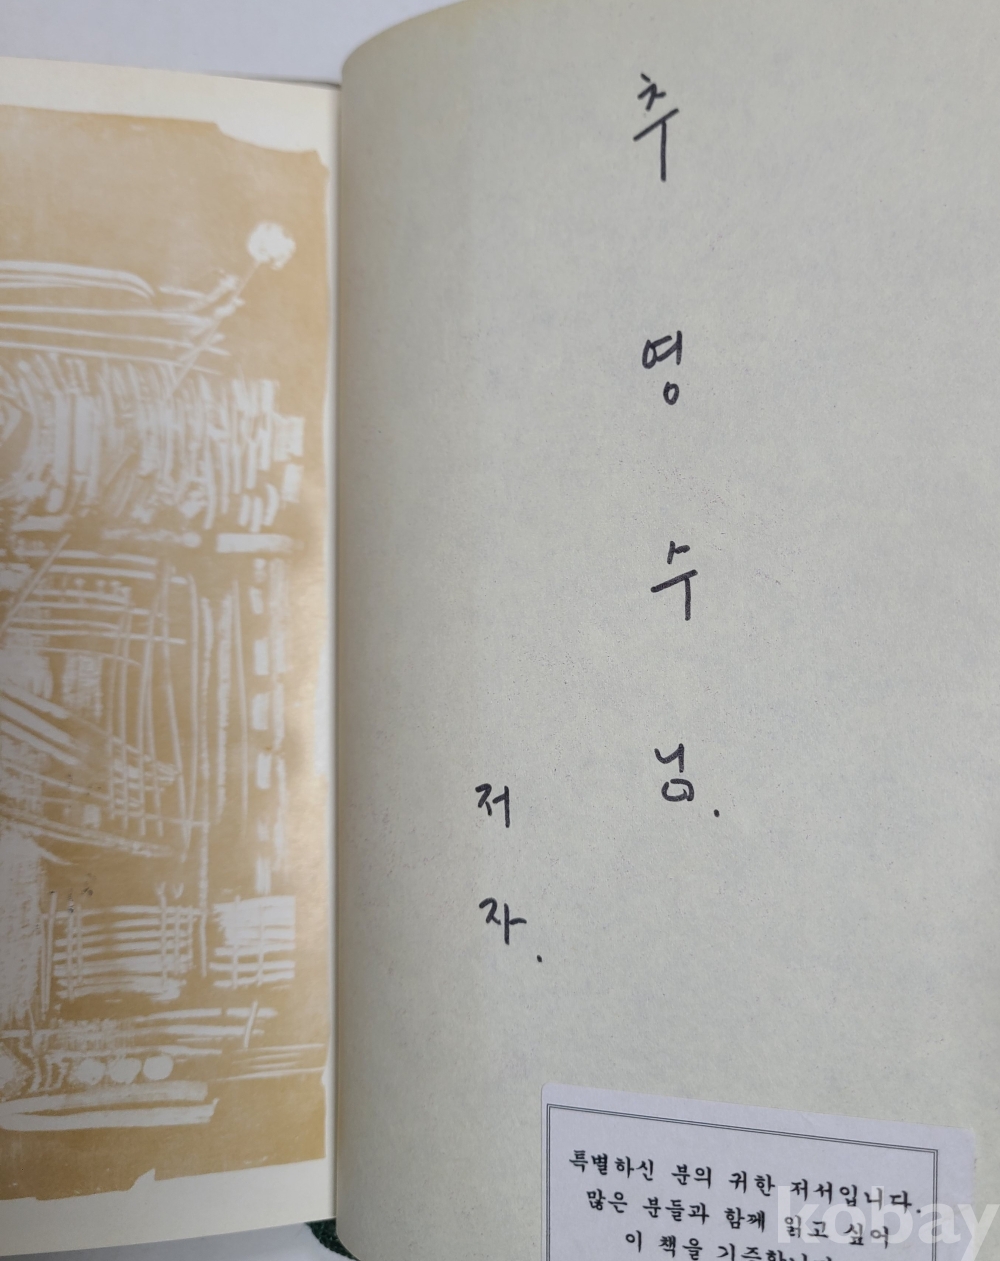 추영수님.
저자.
특별하신 분의 귀한 저서입니다.
많은 분들과 함께 읽고 싶어
이 책을 기증합니다
kobay